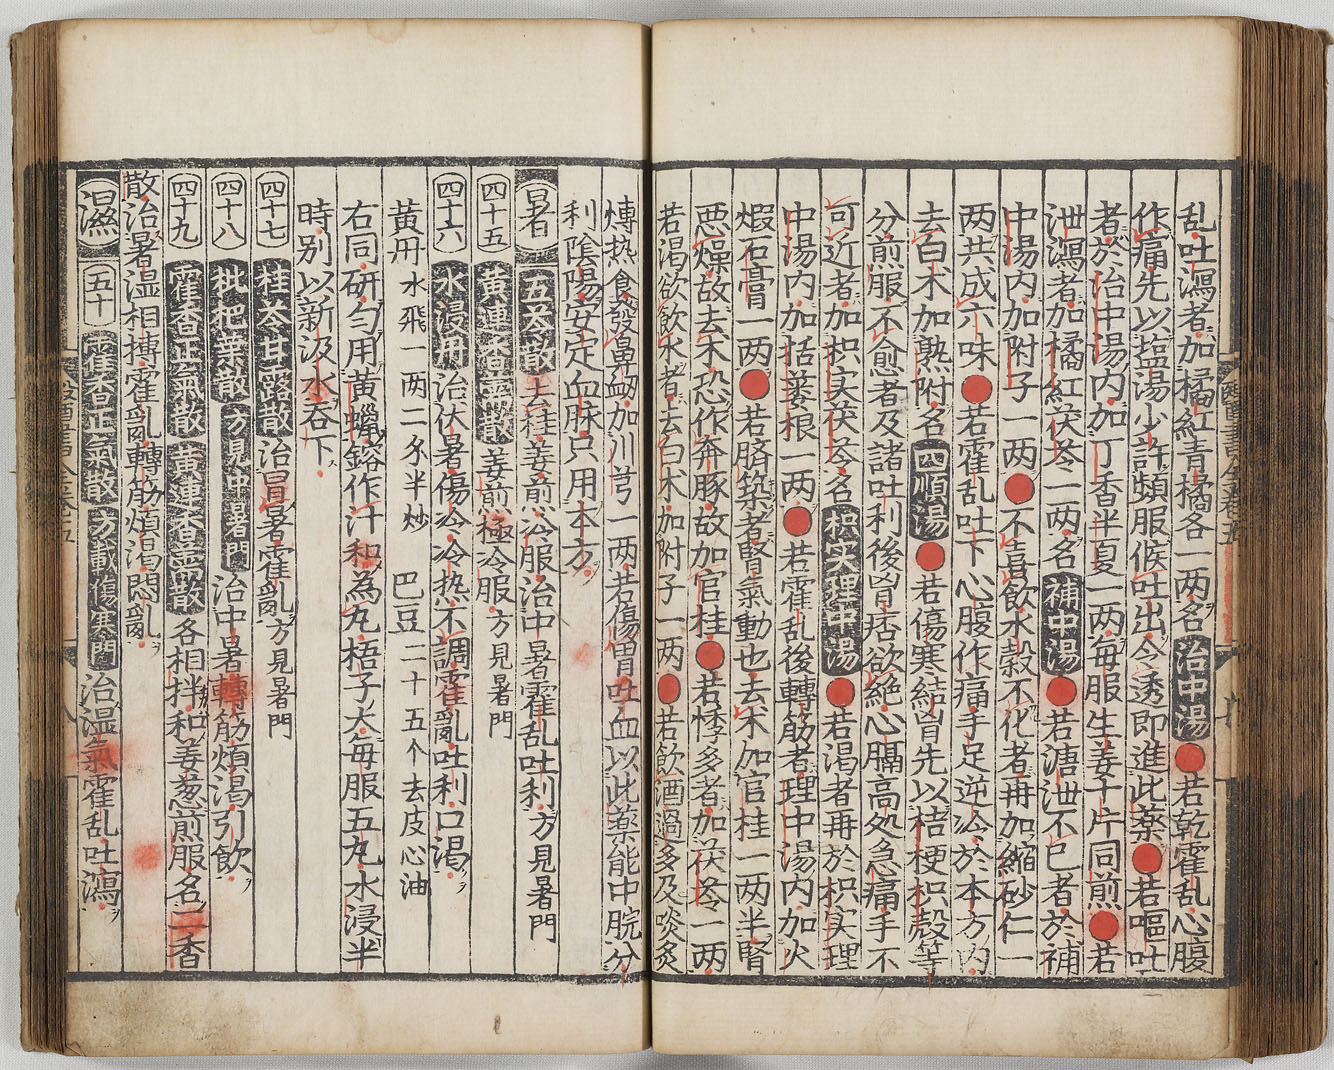 乱吐瀉者加橘紅青橘各一两名治中湯●若乾霍乱心腹
作痛先以塩湯少許頻服候吐出令透即進此薬●若嘔吐
者於治中湯内加丁香半夏一两每服生姜十片同煎●若
泄瀉者加橘紅茯苓一两名補中湯●若溏泄不已者於補
中湯内加附子一两●不喜飲水穀不化者再加縮砂仁一
两共成六味●若霍乱吐下心腹作痛手足逆冷於本方内
去白术加熟附名四順湯●若傷寒結胷先以桔梗枳殻等
分煎服不愈者及諸吐利後胷痞欲絶心膈高処急痛手不
可近者加枳实茯苓名枳实理中湯●若渇者再於枳实理
中湯内加栝蔞根一两●若霍乱後轉筋者理中湯内加火
煆石膏一两●若臍築者腎氣動也去术加官桂一两半腎
悪燥故去术恐作奔豚故加官桂●若悸多者加茯苓一两
若渇欲飲水者去白术加附子一两●若飲酒過多及啖炙
煿热食發鼻衂加川芎一两若傷胃吐血以此薬能中脘分
利陰陽安定血脉只用本方
暑 五苓散去桂姜煎冷服治中暑霍乱吐利方見暑門
四十五 黄連香薷散姜煎極冷服方見暑門
四十六 水浸用治伏暑傷冷冷热不調霍亂吐利口渇
黄丹水飛一两二分半炒 巴豆二十五个去皮心油
右同研匀用黄蠟鎔作汁和為丸梧子大每服五丸水浸半
時别以新汲水吞下
四十七 桂苓甘露散治冒暑霍亂方見暑門
四十八 枇杷葉散方見中暑門治中暑轉筋煩渇引飲
四十九 霍香正氣散黄連香薷散各相拌和姜葱煎服名二香
散治暑湿相搏霍亂轉筋煩渇悶亂
濕 五十 霍香正氣散方載傷寒門治湿氣霍乱吐瀉